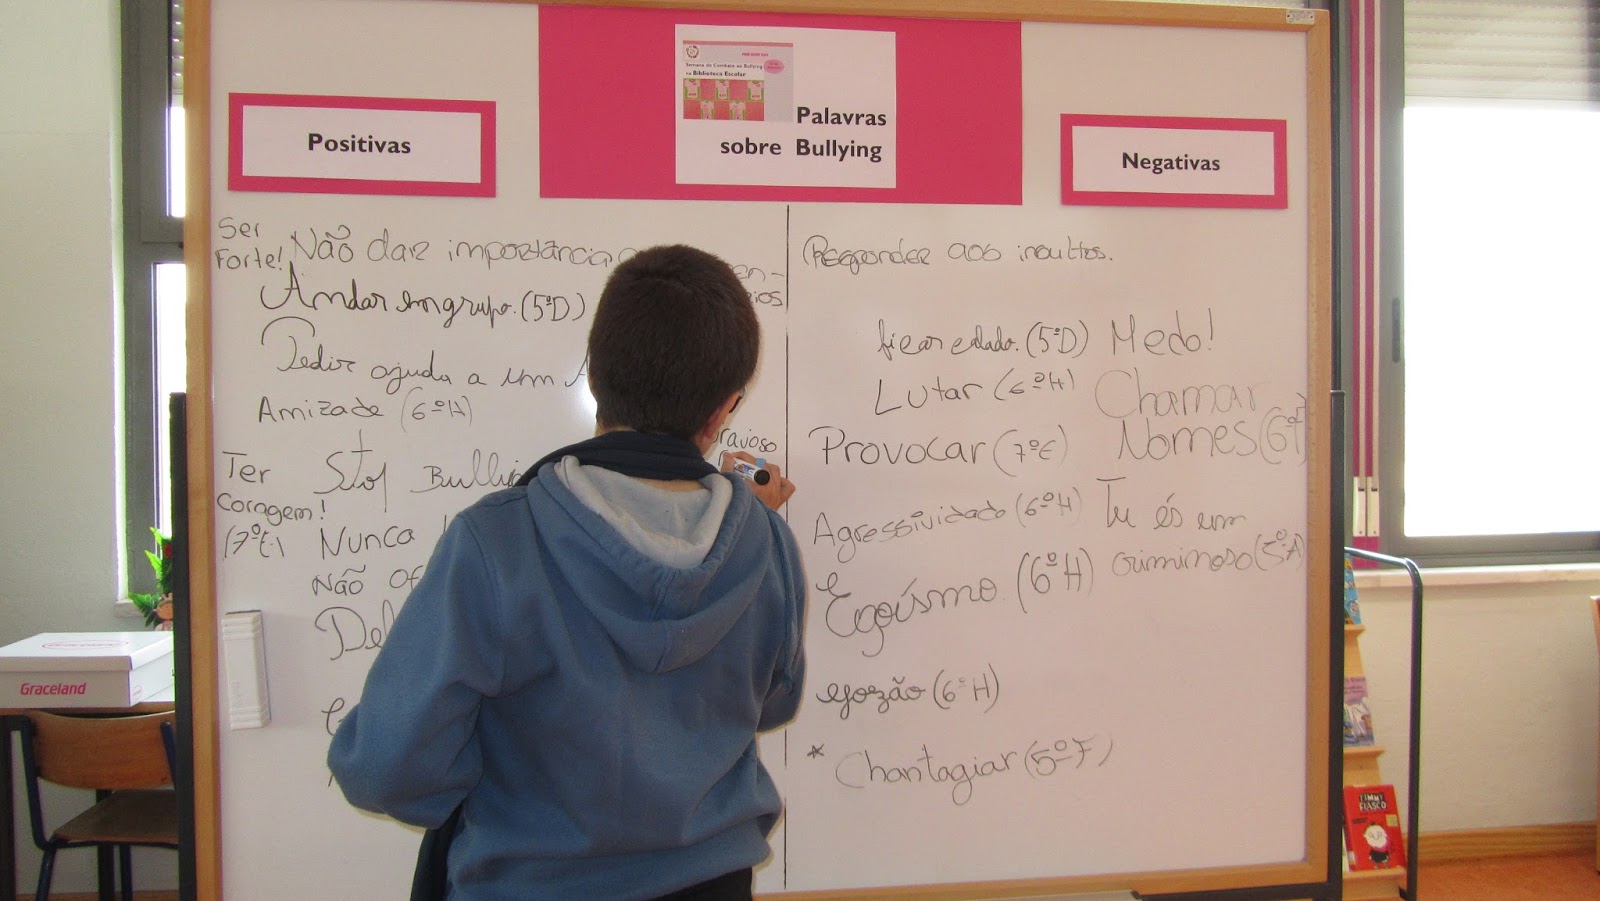 Semana de Combate ao Bullying
na Biblioteca Escolar
Palavras
sobre Bullying
Positivas
Negativas
Ser
Forte!
Não dar importância
Andar em grupo. (5ºD)
Pedir ajuda a um
Amizade (6ºH)
Stop
Ter
Coragem!
(7ºE)
Nunca
Não
Responder aos insultos.
ficar calado. (5ºD)
Medo!
Lutar (6ºH)
Chamar
Nomes
Provocar (7ºE)
Agressividade (6ºH)
Tu és um
criminoso (5ºA)
Egoísmo (6ºH)
gozão (6ºH)
* Chantagiar (5ºF)
Graceland
TIMMY
FIASCO